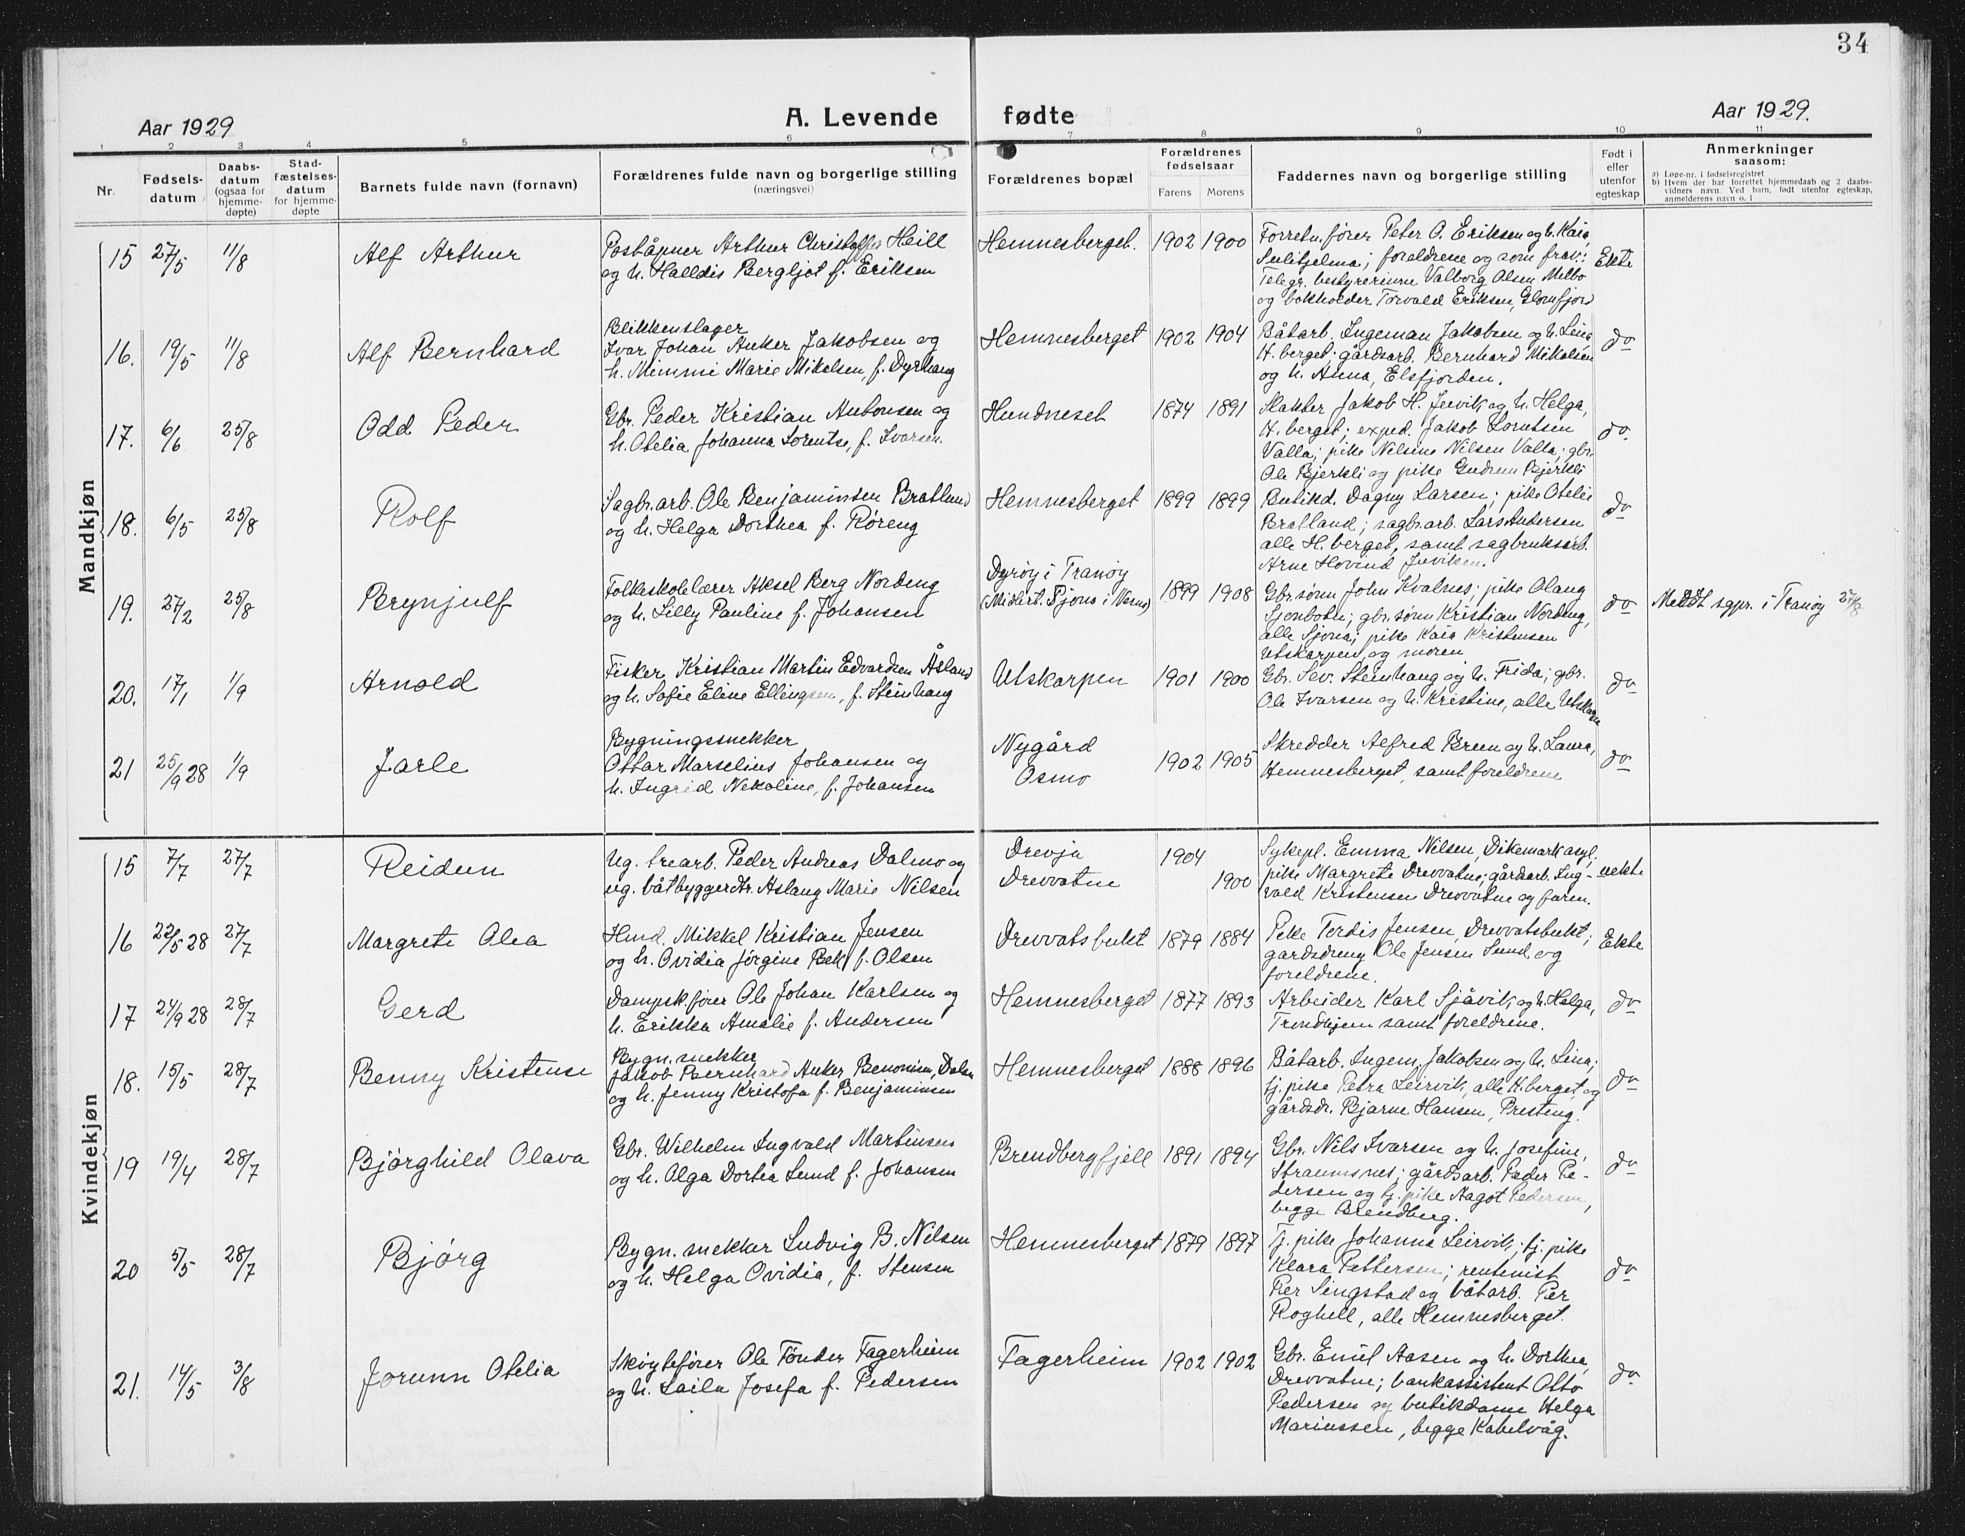 34
Aar 1929
A. Levende fødte
Aar 1929.
1 2 3 4 5 6 7 8 9 10 11
Nr.
Fødsels-
datum
Daabs-
datum
(ogsaa for
hjemme-
døpte)
Stad-
fæstelses-
datum
for hjemme-
døpte
Barnets fulde navn (fornavn)
Forældrenes fulde navn og borgerlige stilling
(næringsvei)
Forældrenes bopæl
Forældrenes
fødselsaar
Farens Morens
Faddernes navn og borgerlige stilling
Født i
eller
utenfor
egteskap
Anmerkninger
saasom:
a) Løpe-nr. i fødselsregistret
b) Hvem der har forrettet hjemmedaab og 2 daabs-
vidners navn. Ved barn, født utenfor egteskap,
anmelderens navn o. l
Mandkjøn
15 27/5 11/8 Alf Arthur
Poståpner Arthur Christoffer Heill
og h. Halldis Bergljot f. Eriksen
Hemnesberget. 1902 1900
Forretn.fører Peter O. Eriksen og h. Kaia,
Sulitjelma; foreldrene og som frav.:
Telegr. bestyrerinne Valborg Olsen Melbo
og bokholder Torvald Eriksen, Glomfjord
Ekte
16. 19/5 11/8 Alf Bernhard
Blikkenslager
Ivar Johan Anker Jakobsen og
h. Memmi Marie Mikelsen, f. Dyrhaug
Hemnesberget 1902 1904
Båtarb. Ingeman Jakobsen og h. Lina,
H. berget; gårdsarb. Bernhard Mikalsen
og h. Anna, Elsfjorden.
do
17. 6/6 25/8 Odd Peder
Gbr. Peder Kristian Antonsen og
h. Otelia Johanna Lorentse, f. Ivarsen.
Hundneset 1874 1891
Slakter Jakob H. Leirvik og h. Helga,
H. berget; exped. Jakob Lorntsen
Valla; pike Nilsine Nilsen Valla; gbr.
Ole Bjerkli og pike Gudrun Bjerkli
do.
18. 6/5 25/8 Rolf
Sagbr.arb. Ole Benjaminsen Bratland
og h. Helga Dorthea f. Røreng
Hemnesberget 1899 1899
Butikd. Dagny Larsen; pike Otelie
Bratland; sagbr.arb. Lars Andersen
alle H. berget, samt sagbruksarb.
Arne Hovind Juviken.
do
19. 27/2 25/8 Brynjulf
Folkeskolelærer Aksel Berg Nordeng
og h. Lilly Pauline f. Johansen
Dyrøy i Tranøy
(Midlert. Sjona i Nesna) 1899 1908
Gbr.sønn John Kvalnes; pike Olaug
Sjonbotn; gbr.sønn Kristian Nordeng,
alle Sjona; pike Kaia Kristensen
Utskarpen, og moren
do
Meldt sgpr. i Tranøy 27/8
20. 17/1 1/9 Arnold
Fisker Kristian Martin Edvardsen Åsland
og h. Sofie Eline Ellingsen, f. Steinhaug
Utskarpen 1901 1900
Gbr. Sev. Steinhaug og h. Frida; gbr.
Ole Ivarsen og h. Kristine, alle Utskarpen
do
21 25/9 28 1/9 Jarle
Bygningssnekker
Ottar Marselius Johansen og
h. Ingrid Nekoline, f. Johansen
Nygård
Osmo 1902 1905
Skredder Alfred Breen og h. Laura,
Hemnesberget, samt foreldrene
do
Kvindekjøn
15 7/7 27/7 Reidun
Ug. trearb. Peder Andreas Dalmo og
ug. båtbyggerdtr. Aslaug Marie Nilsen
Drevja
Drevvatne 1904 1900
Sykepl. Emma Nilsen, Dikemark asyl,
pike Margrete Drevvatne; gårdsarb. Ing-
vald Kristensen Drevvatne og faren.
uekte
16 22/5 28 27/7 Margrete Olea
Hmd. Mikkel Kristian Jensen
og h. Ovidia Jørgine Bek f. Olsen
Drevvatsbukt 1879 1884
Pike Tordis Jensen, Drevvatsbukt;
gårdsdreng Ole Jensen Lund og
foreldrene.
Ekte
17 24/9 28 28/7 Gerd
Dampsk.fører Ole Johan Karlsen og
h. Erikka Amalie f. Andersen
Hemnesberget 1877 1893
Arbeider Karl Sjåvik og h. Helga,
Trondhjem samt foreldrene.
do
18. 15/5 28/7 Benny Kristense
Bygn.snekker
Jakob Bernhard Anker Benonisen, Dalen
og h. Jenny Kristofa f. Benjaminsen
Hemnesberget 1888 1896
Båtarb. Ingem. Jakobsen og h. Lina;
tj. pike Petra Leirvik, alle H.berget, og
gårdsdr. Bjarne Hansen, Presteng.
do
19 19/4 28/7 Bjørghild Olava
Gbr. Wilhelm Ingvald Martinsen
og h. Olga Dortea Lund f. Johansen
Brendbergfjell 1891 1894
Gbr. Nils Ivarsen og h. Josefine,
Straumsnes; gårdsarb. Peder Pe-
dersen og tj. pike Aagot Pedersen,
begge Brendberg.
do
20 5/5 28/7 Bjørg
Bygn. snekker Ludvig B. Nilsen
og h. Helga Ovidia, f. Stensen
Hemnesberget 1879 1897
Tj. pike Johanna Leirvik; tj. pike
Klara Pettersen; rentenist
Per Singstad og båtarb. Per
Roghell, alle Hemnesberget.
do
21. 14/5 3/8 Jorunn Otelia
Skøytefører Ole Tønder Fagerheim
og h. Laila Josefa f. Pedersen
Fagerheim 1902 1902
Gbr. Emil Aasen og h. Dorthea,
Drevvatne; bankassistent Otto
Pedersen og butikdame Helga
Mariussen, begge Kabelvåg.
do